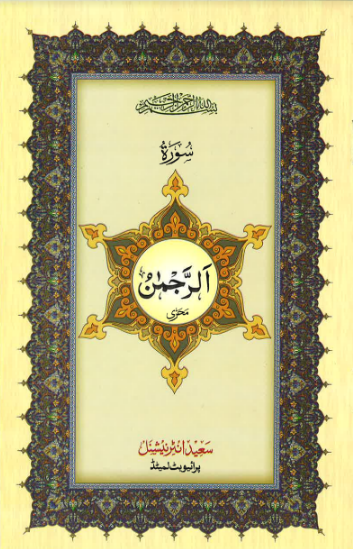 بسم الله الرحمن الرحيم
سُورَةُ
اَلرَّحْمٰنْ
مَعَرّٰی
سَعِید انٹرنیشنل
پرائیویٹ لمیٹڈ